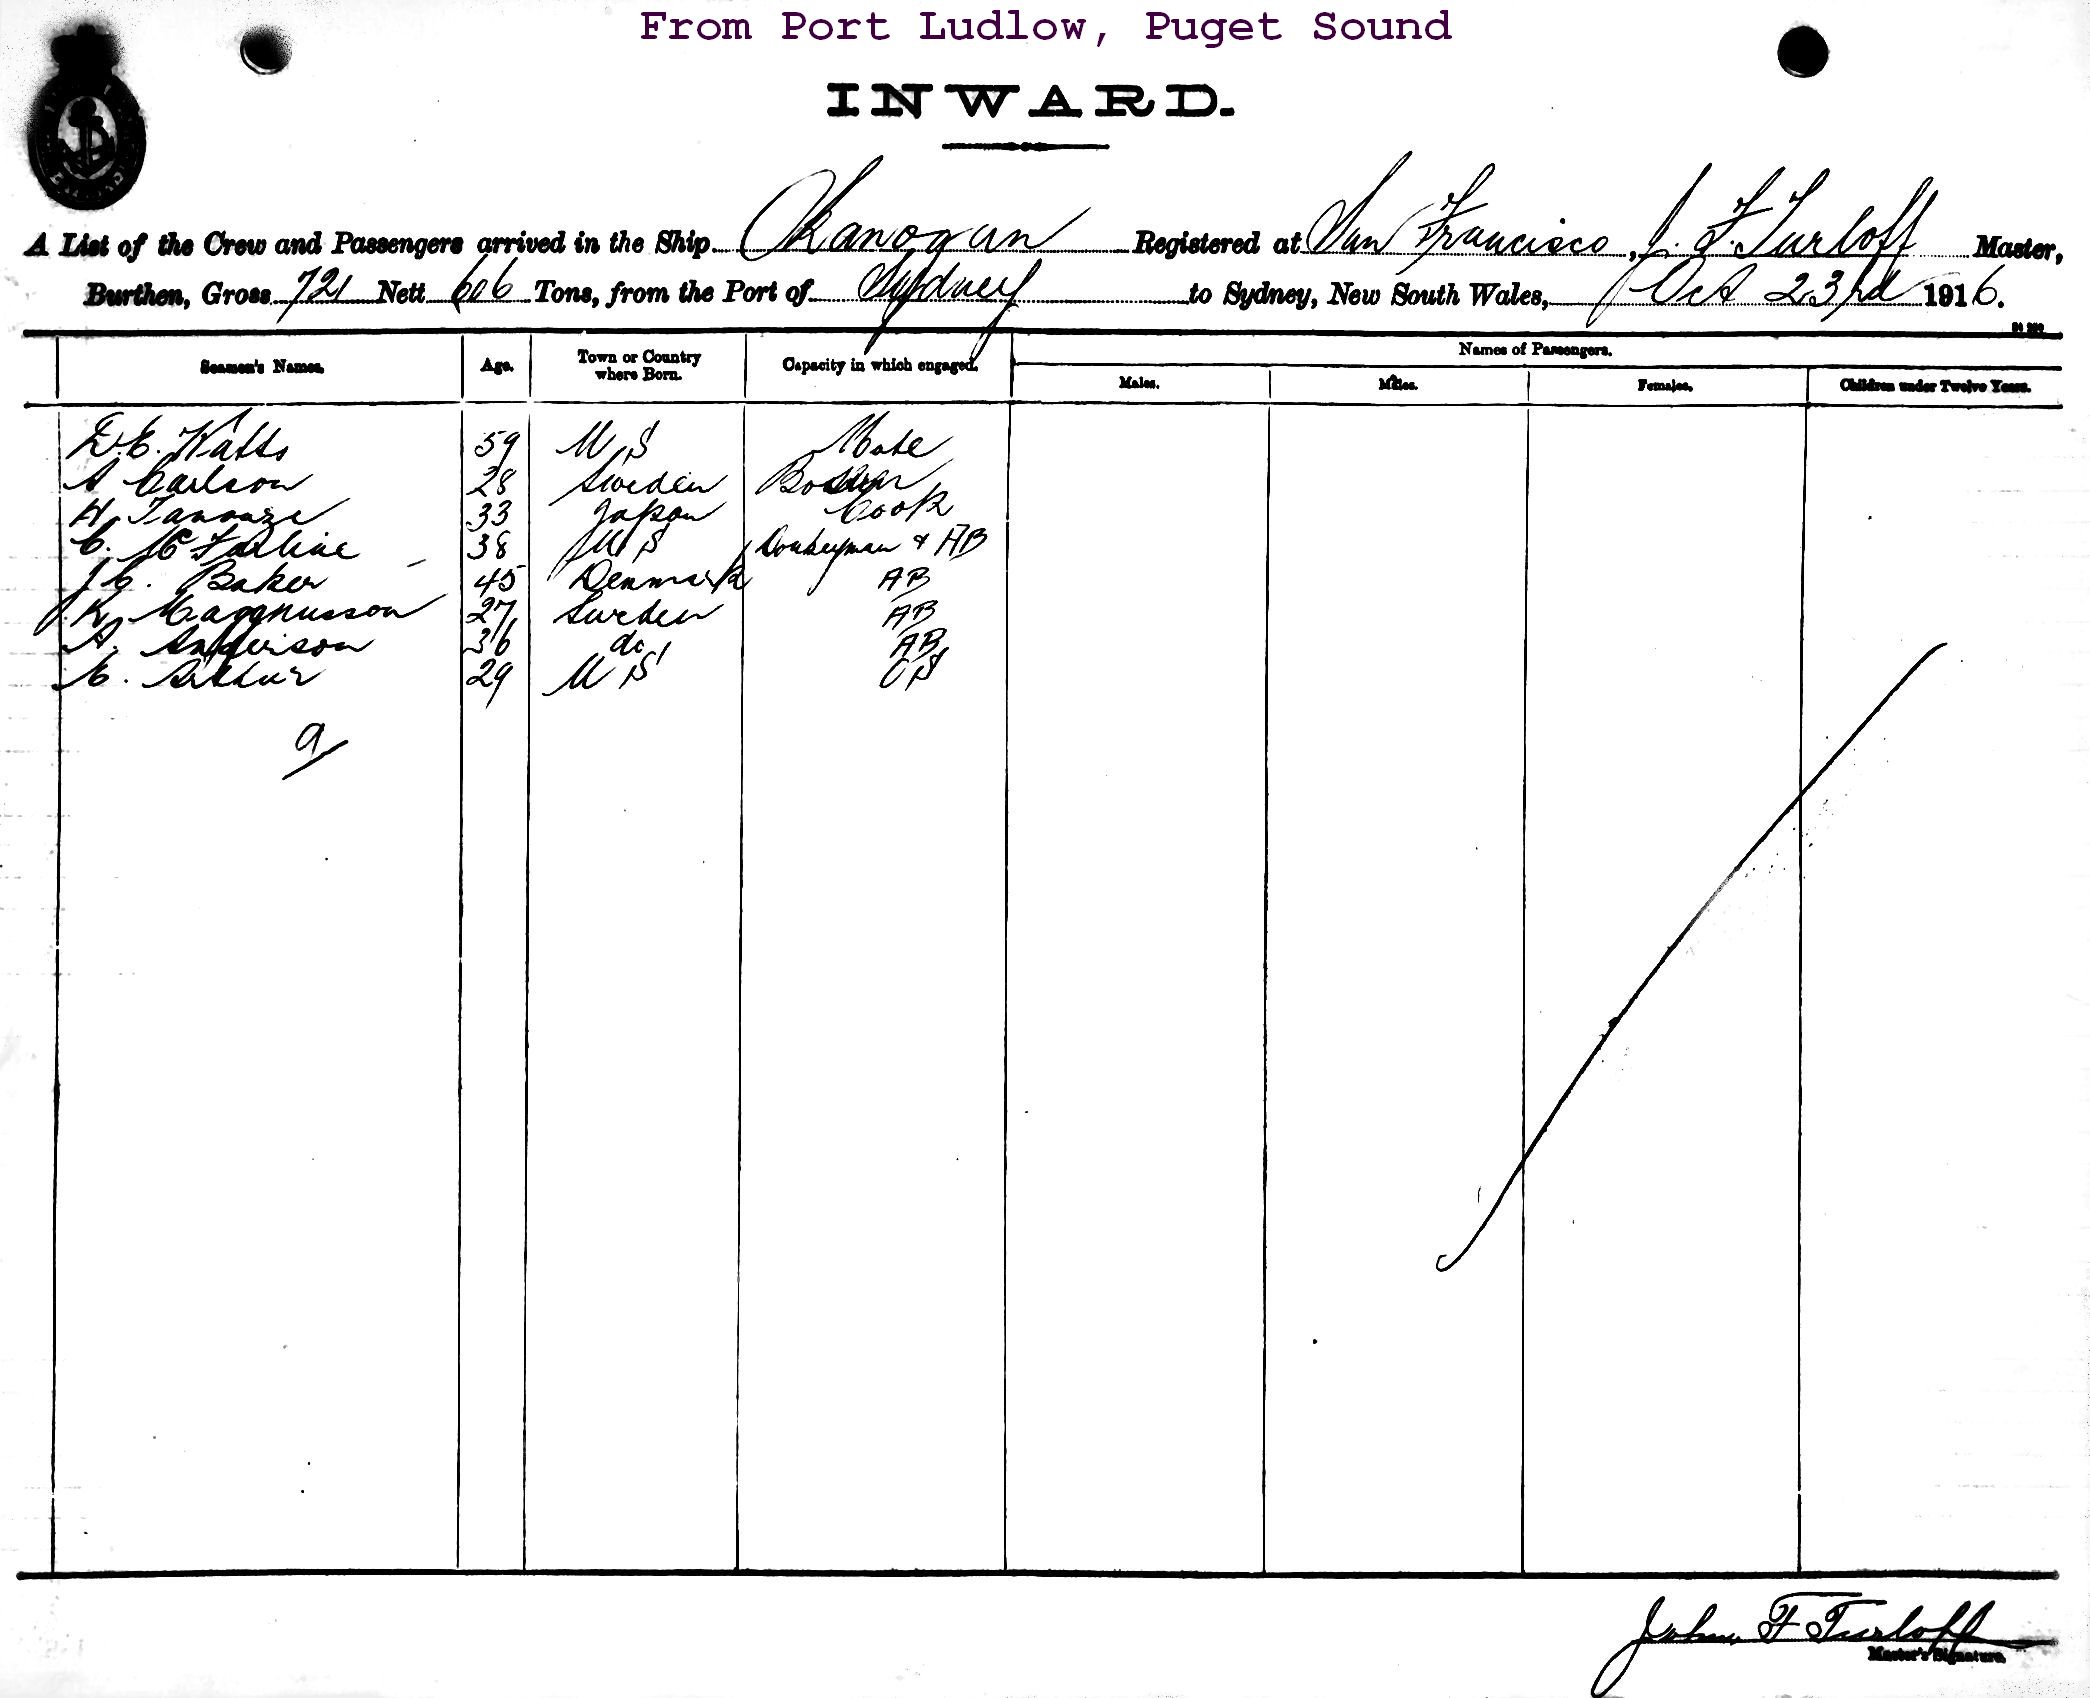 From Port Ludlow, Puget Sound
INWARD.
A List of the Crew and Passengers arrived in the Ship Okanogan Registered at San Francisco, J. F. Turloff Master,
Burthen, Gross 721 Nett 606 Tons, from the Port of Sydney to Sydney, New South Wales, Oct 23rd 1916.
Seamen's Names. Age. Town or Country where Born. Capacity in which engaged. Names of Passengers.
Males. Males. Females. Children under Twelve Years.
D.E. Watts 59 U S Mate
A Carlson 28 Sweden
H. 33 Japan Cook
C. 38 U S Donkeyman & AB
J C. Baker 45 Denmark AB
K. Maggnusson 27 Sweden AB
A. Anderson 36 do AB
E. Arthur 29 U S OS
9
John F Turloff
Master's Signature.